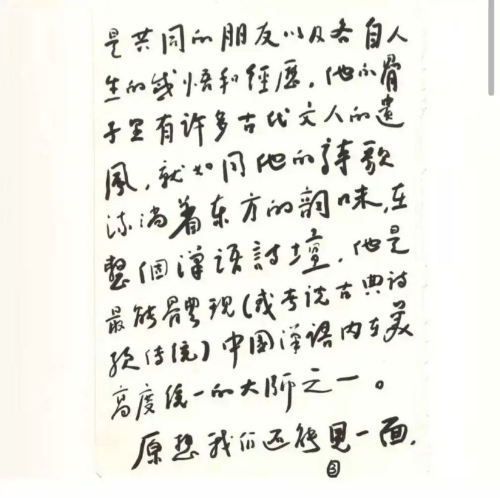 是共同的朋友以及各自人
生的感悟和經歷，他的骨
子里有许多古代文人的遗
風，就如同他的詩歌
流淌着东方的韵味，在
整個漢语詩壇，他是
最能體现（或者说古典诗
歌传统）中国漢语内在美
高度统一的大师之一。
原想我们还能見一面，
③